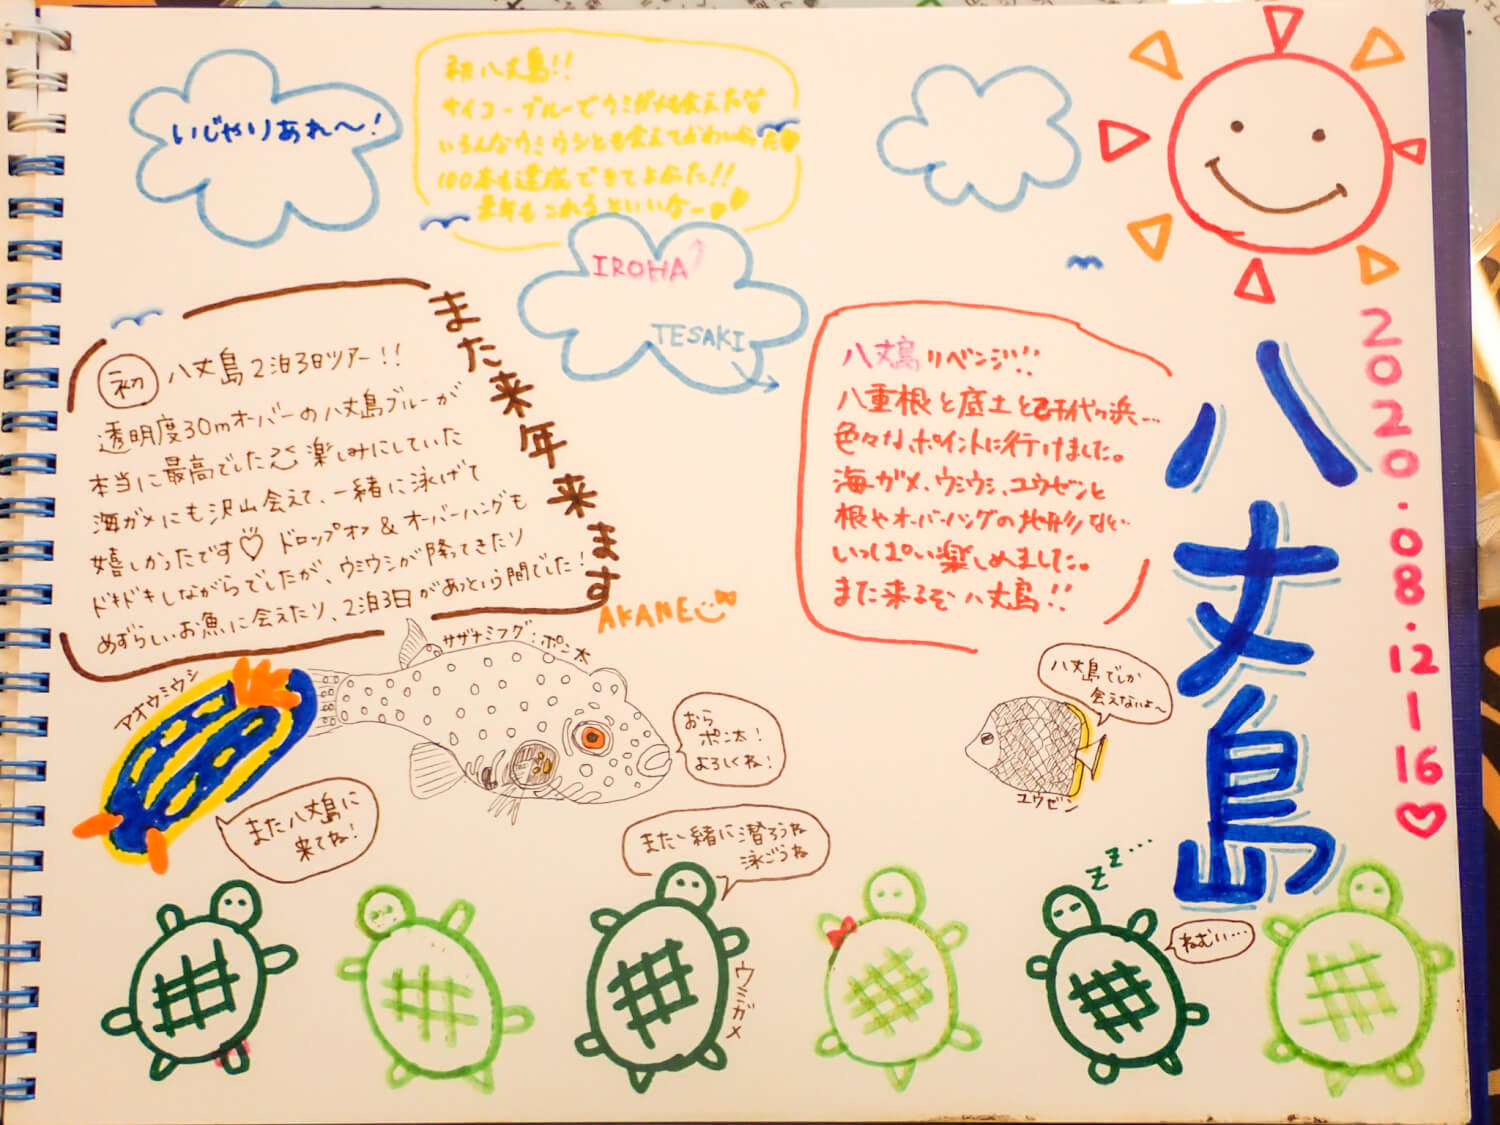 いじゃりあれ〜!
初八丈島!!
サイコーブルーでウミガメも会えたな
いろんなウミウシとも会えてかわいかった
100本も達成できてよかった!!
来年もこれるといいなー
IROHA
TESAKI
初 八丈島2泊3日ツアー!!
透明度30mオーバーの八丈島ブルーが
本当に最高でした 楽しみにしていた
海ガメにも沢山会えて、一緒に泳げて
嬉しかったです♡ ドロップオフ&オーバーハングも
ドキドキしながらでしたが、ウミウシが降ってきたり
めずらしいお魚に会えたり、2泊3日があっという間でした!
また来年来ます
AKANE
八丈島リベンジ!!
八重根と底土と乙千代ヶ浜…
色々なポイントに行けました。
海ガメ、ウミウシ、ユウゼンと
根やオーバーハングの地形など…
いっぱい楽しめました。
また来るぞ 八丈島!!
八丈島
2020.08.12-16♡
アオウミウシ
また八丈島に
来てね!
サザナミフグ:ポン太
おら
ポン太!
よろしくね!
八丈島でしか
会えないよ〜
ユウゼン
また一緒に潜ろうね
泳ごうね
ウミガメ
zzz…
ねむい…